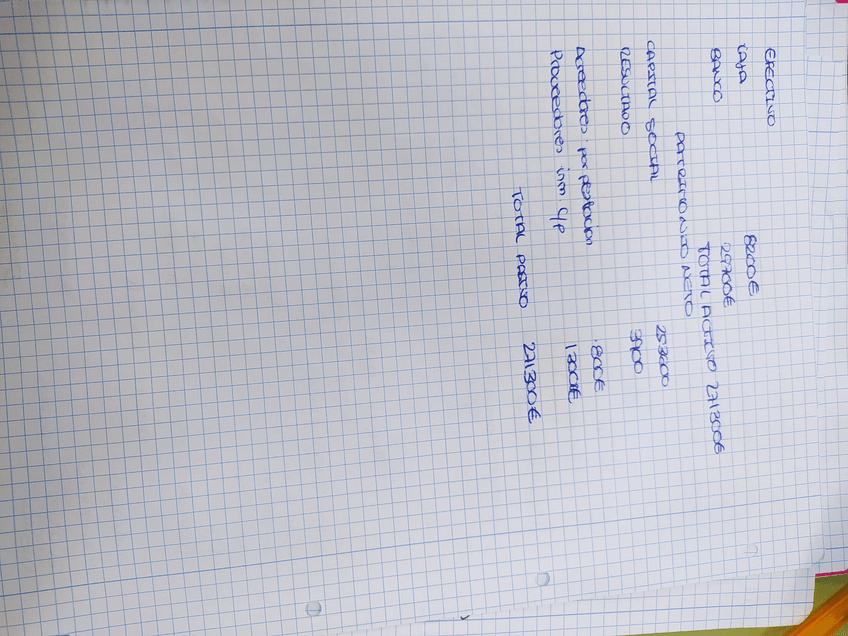 EFECTIVO
CAJA 8200€
BANCO 25700€
TOTAL ACTIVO 271300€
PATRIMONIO NETO
CAPITAL SOCIAL 253600
RESULTADO 3900
Acreedores por prestacion 800€
Proveedores inm c/p 13000€
TOTAL PASIVO 271300€